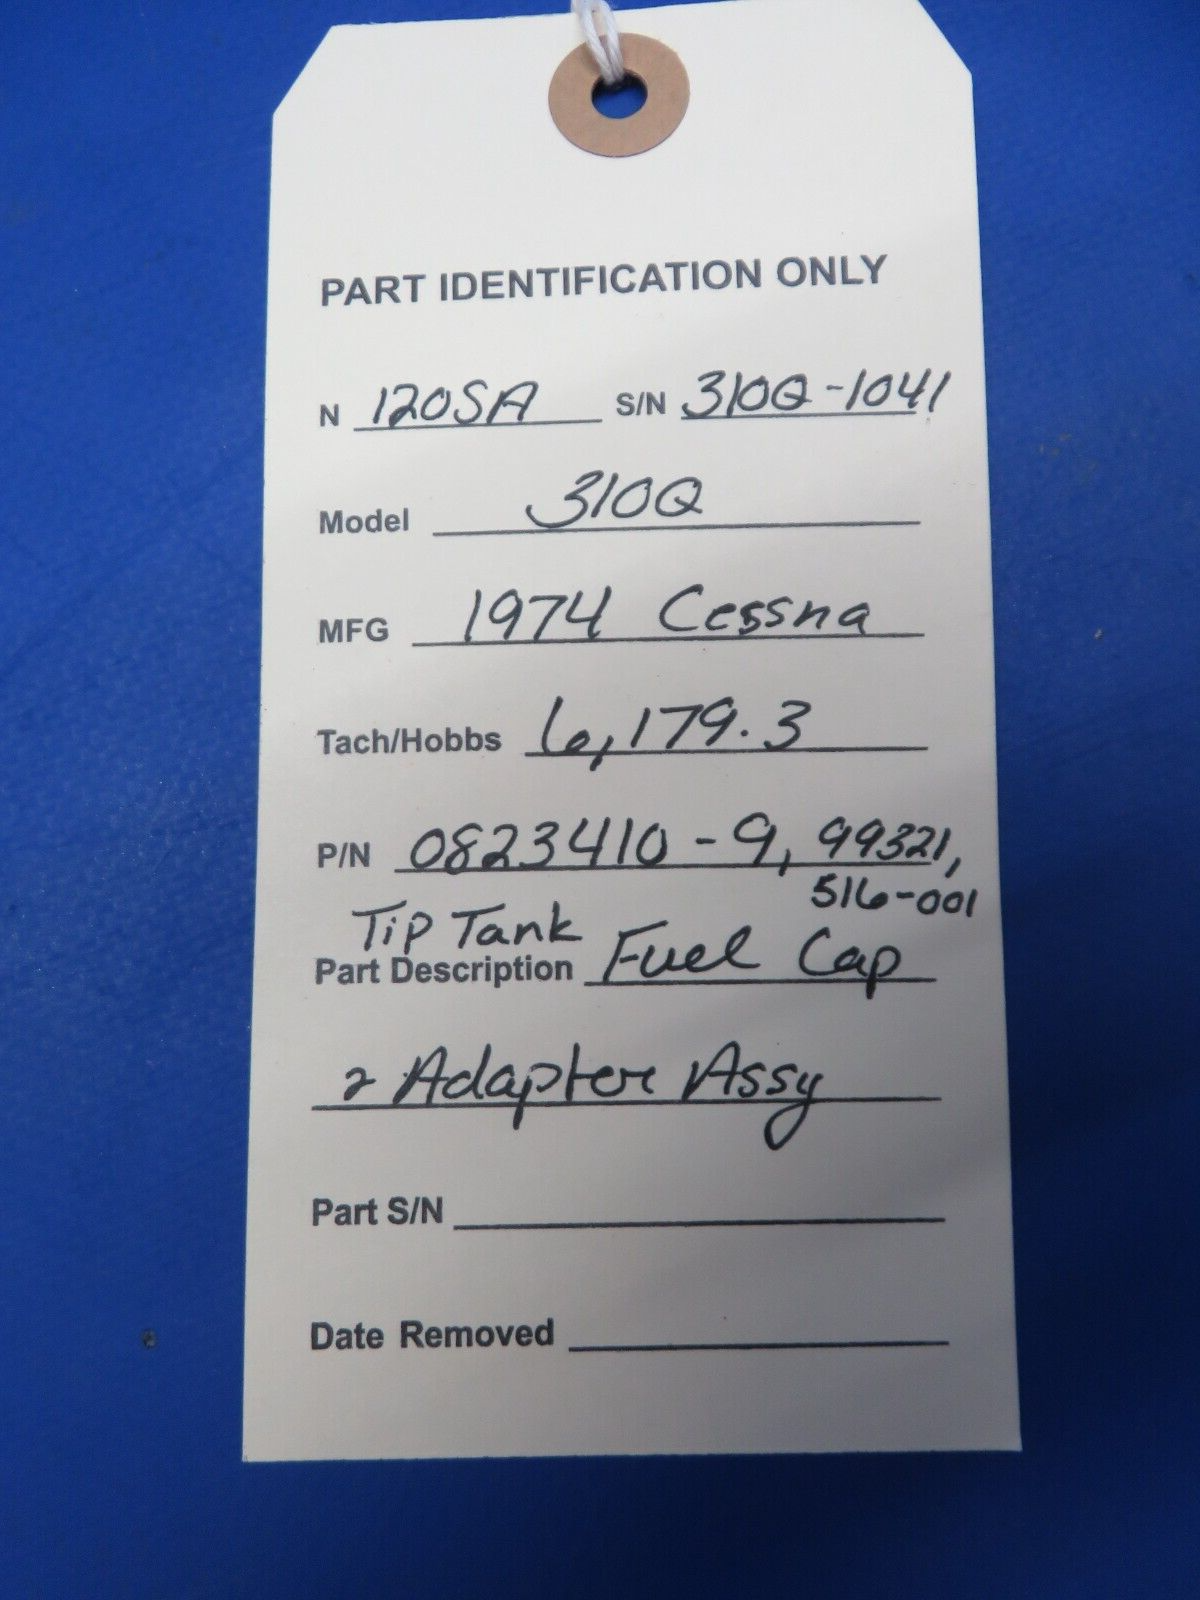 PART IDENTIFICATION ONLY
N 120SA S/N 310Q-1041
Model 310Q
MFG 1974 Cessna
Tach/Hobbs 6,179.3
P/N 0823410-9, 99321,
516-001
Tip Tank
Part Description Fuel Cap
& Adapter Assy
Part S/N
Date Removed